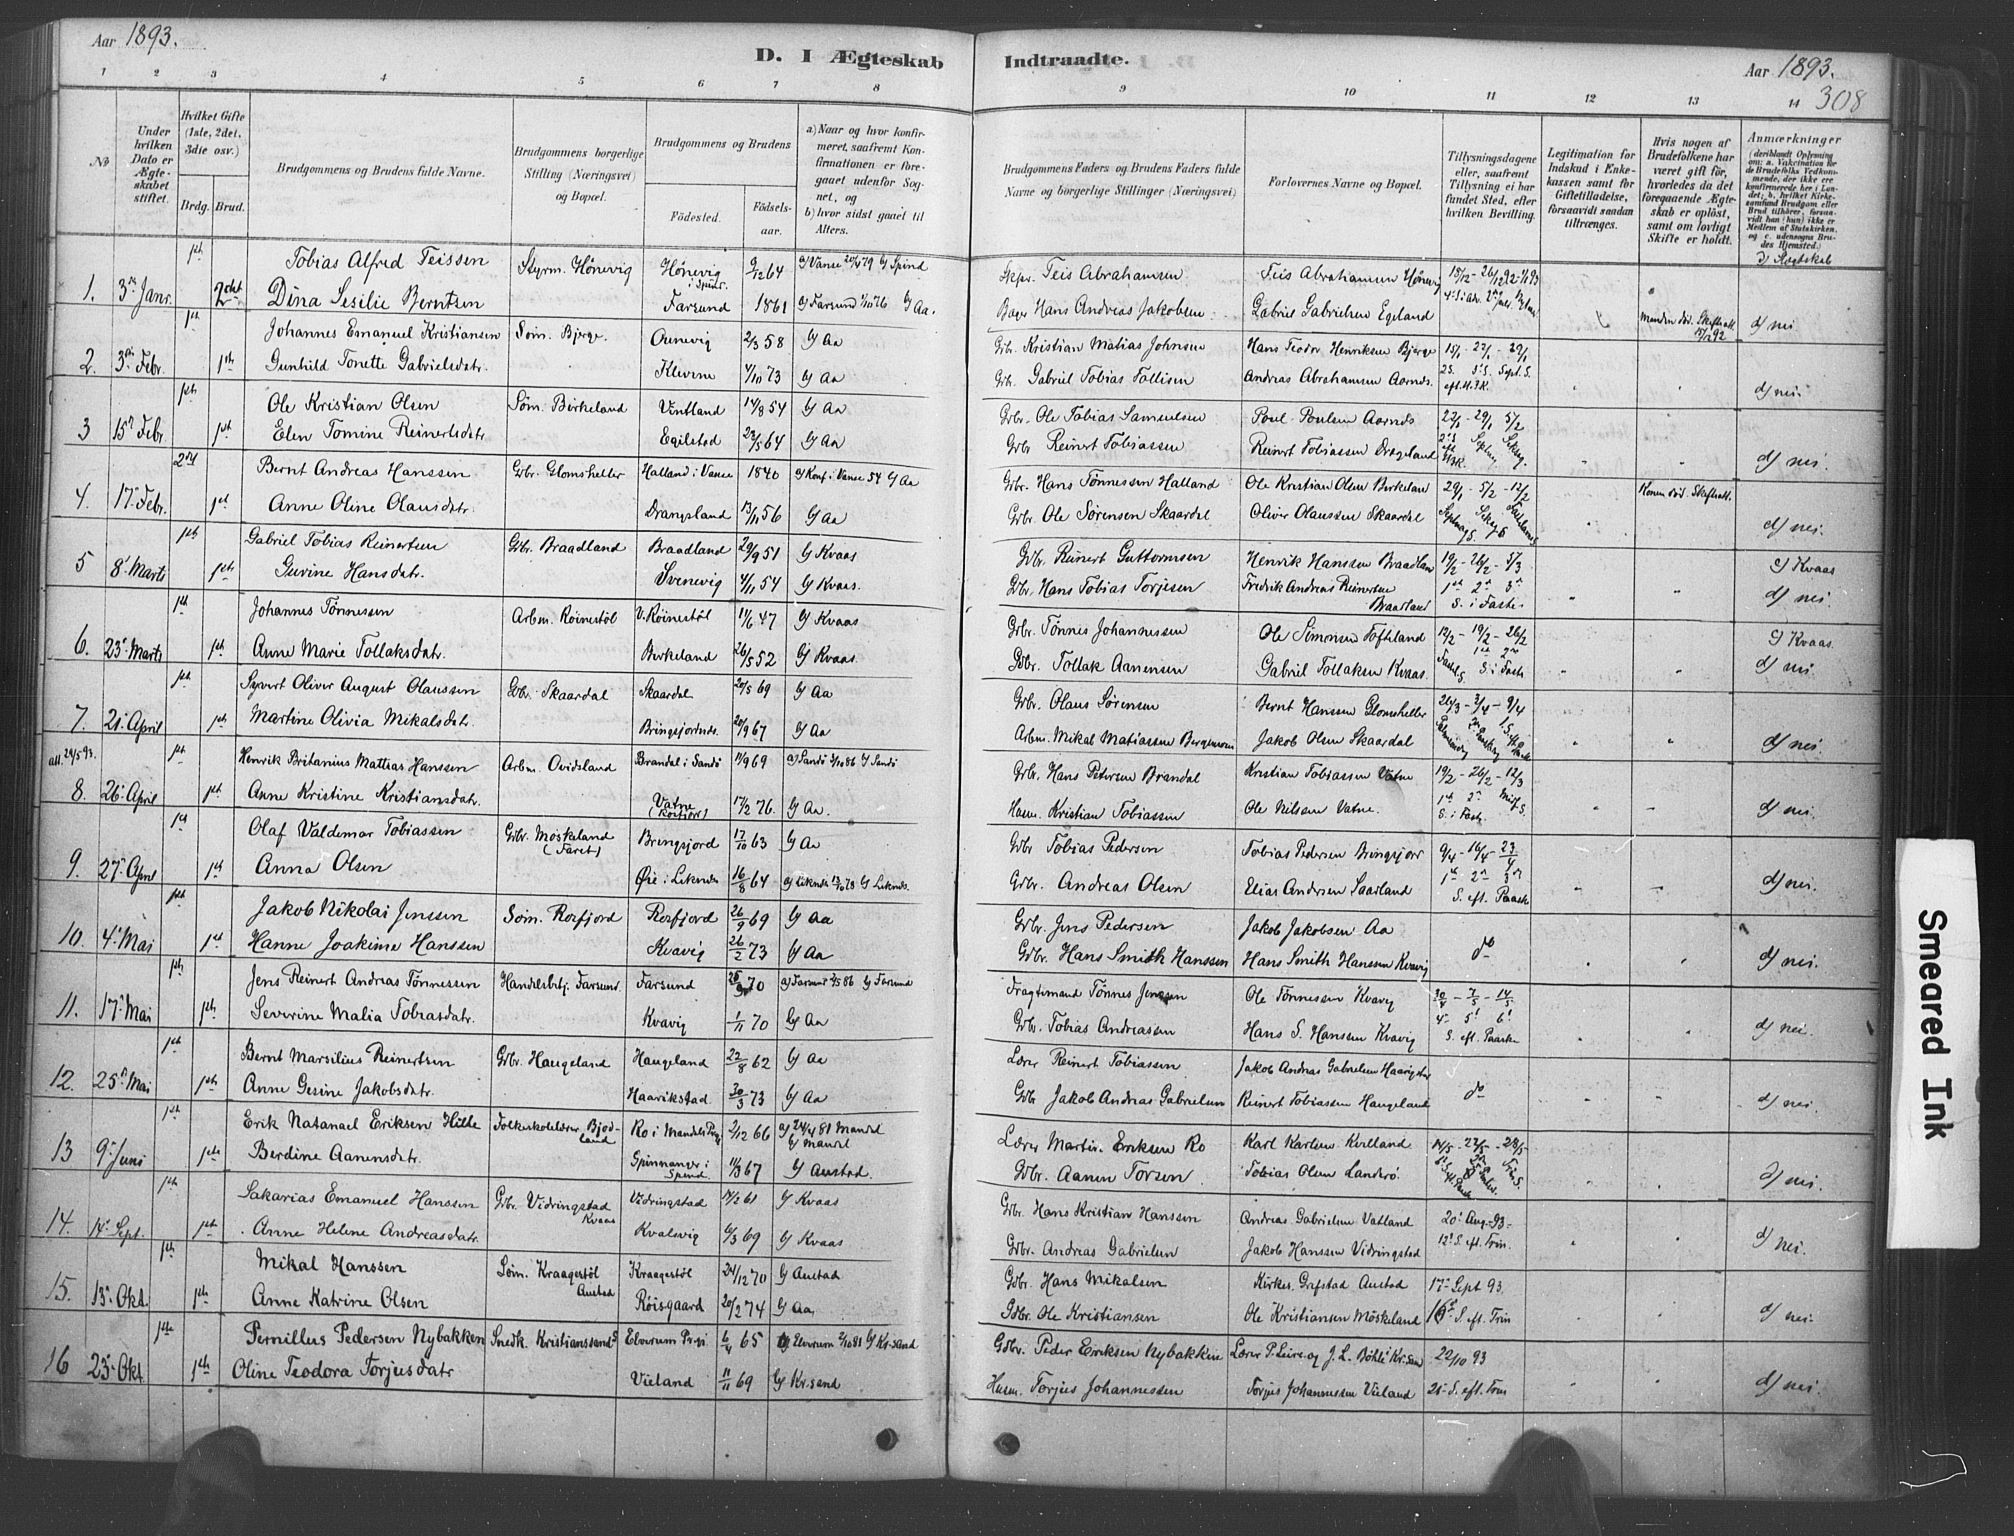 Aar 1893.
D. I Ægteskab Indtraadte.
Aar 1893.
308
1 2 3 4 5 6 7 8 9 10 11 12 13 14
No
Under hvilken Dato er Ægteskabet stiftet.
Hvilket Gifte (1ste, 2det, 3die osv.)
Brdg. Brud.
Brudgommens og Brudens fulde Navne.
Brudgommens borgerlige Stilling (Næringsvei) og Bopæl.
Brudgommens og Brudens
Fødested. Fødselsaar.
a) Naar og hvor konfirmeret, saafremt Konfirmationen er foregaaet udenfor Sognet, og
b) hvor sidst gaaet til Alters.
Brudgommens Faders og Brudens Faders fulde Navne og borgerlige Stillinger (Næringsvei)
Forlovernes Navne og Bopæl.
Tillysningsdagene eller, saafremt Tillysning ei har fundet Sted, efter hvilken Bevilling.
Legitimation for Indskud i Enkekassen samt for Giftetilladelse, forsaavidt saadan tiltrænges.
Hvis nogen af Brudefolkene har været gift før, hvorledes da det foregaaende Ægteskab er opløst, samt om lovligt Skifte er holdt.
Anmærkninger
1. 3die Janr. 1ste Tobias Alfred Teissen Styrm. Hönevig Hönevig i Spind 9/12 64 a) Vanse 20/4 79 b) Spind Skipr. Teis Abrahamsen Teis Abrahamsen Hönevig 18/12 - 26/12 92 - 1/1 93
2det Dina Sesilie Berntsen Farsund 1861 a) Farsund 1/10 76 b) Aa. Bager Hans Andreas Jakobsen Gabriel Gabrielsen Egeland Manden död. Skifteatt. 15/12 92 d) nei.
2. 3die Febr. 1ste Johannes Emanuel Kristiansen Söm. Bjerge. Ounevig 2/3 58 b) Aa Grb. Kristian Matias Johnsen Hans Teodor Henriksen Bjerge 15/1 - 22/1 - 29/1
1ste Gunhild Tonette Gabrielsdatr. Klevene 4/10 73 b) Aa Grb. Gabriel Tobias Tollisen Andreas Abrahamsen Aarnds. 2S. 3S. Sept. S. eft. H.3K. d) nei.
3 15de Febr. 1ste Ole Kristian Olsen Söm. Birkeland Vintland 14/8 54 b) Aa Grbr. Ole Tobias Samuelsen Poul Poulsen Aarnds 22/1 - 29/1 5/2
1ste Elen Tomine Reinertsdatr Egilstad 23/5 64 b) Aa Grbr Reinert Tobiassen Reinert Tobiassen Drageland d) nei.
4. 17de Febr. 2det Bernt Andreas Hanssen Grbr. Glomsheller Halland i Vanse 1840 a) Konf. i Vanse 54 b) Aa Grbr. Hans Tönnessen Halland Ole Kristian Olsen Birkeland 29/1 - 5/2 - 12/2 Konen död. Skifteatt.
1ste Anne Oline Olausdatr. Drangsland 13/11 56 b) Aa Grbr. Ole Sörensen Skaardal Oliver Olaussen Skaardal d) nei.
5 8de Marts 1ste Gabriel Tobias Reinertsen Grbr. Braadland Braadland 29/9 51 b) Kvaas Grbr. Reinert Guttormsen Henrik Hanssen Braadland 19/2 - 26/2 - 5/3 c) Kvaas
1ste Gurine Hansdatr. Svenevig 4/11 54 b) Kvaas. Grbr. Hans Tobias Torjesen Fredrik Andreas Reinertsen Braadland 1ste 2den 3die S. i Faste d) nei.
6. 23de Marts 1ste Johannes Tönnessen Arbm. Röinestöl V. Röinestöl 11/6 47 b) Kvaas Grbr. Tönnes Johannessen Ole Simonsen Tofteland 12/2 - 19/2 - 26/2 c) Kvaas.
1ste Anne Marie Tollaksdatr. Birkeland 26/5 52 b) Kvaas. Grbr. Tollak Aanensen Gabriel Tollaksen Kvaas. S. i Faste d) nei
7. 21de April 1ste Syvert Oliver August Olaussen Grbr. Skaardal Skaardal 20/5 69 b) Aa Grbr. Olaus Sörensen Bernt Hanssen Glomsheller 26/3 - 3/4 - 9/4
1ste Martine Olivia Mikalsdatr. Bringsjordnes. 20/9 67 b) Aa Arbm. Mikal Matiassen Jakob Olsen Skaardal d) nei.
att. 29/5 93.
8. 26de April 1ste Henrik Britanius Mattias Hanssen Arbm. Ovidsland Brandal i Sandö 11/9 69 a) Sandö 3/10 86 b) Sandö Grbr. Hans Petersen Brandal Kristian Tobiassen Vatne 19/2 - 26/2 - 12/3
1ste Anne Kristine Kristiansdatr. Vatne 17/2 76. b) Aa. Husm. Kristian Tobiassen Ole Nilsen Vatne. 1ste 2den S. i Faste d) nei.
9. 27de April 1ste Olaf Valdemar Tobiassen Grbr. Möskeland (Faret) Bringsjord 17/10 63 b) Aa Grbr Tobias Pedersen Tobias Pedersen Bringsjord 9/4 - 16/4 - 23/4
1ste Anna Olsen Öie i Liknes 16/8 64 a) Liknes 13/10 78 b) Liknes. Grbr. Andreas Olsen Elias Andersen Saarland 1ste 2den 3die S. eft. Paaske d) nei.
10. 4de Mai 1ste Jakob Nikolai Jenssen Söm. Rosfjord Rosfjord 26/9 69 b) Aa Grbr. Jens Pedersen Jakob Jakobsen Aa
1ste Hanne Joakime Hanssen Kvavig 26/2 73 b) Aa Grbr. Hans Smith Hanssen Hans Smith Hanssen Kvavig do d) nei.
11. 17de Mai 1ste Jens Reinert Andreas Tönnessen Handelsbtj. Farsund Farsund 25/3 70 a) Farsund 2/5 86 b) Farsund Fragtemand Tönnes Jenssen Ole Tönnessen Kvavig 30/4 - 7/5 - 14/5
1ste Severine Malia Tobiasdatr. Kvavig 1/11 70 b) Aa Grbr. Tobias Andreassen Hans S. Hanssen Kvavig 4- 5te 6te S. eft. Paaske d) nei.
12. 25de Mai 1ste Bernt Marsilius Reinertsen Grbr. Haugeland Haugeland 22/8 62 b) Aa Lærer Reinert Tobiassen Jakob Andreas Gabrielsen
1ste Anne Gesine Jakobsdatr. Haarikstad 30/3 73 b) Aa Grbr Jakob Andreas Gabrielsen Reinert Tobiassen Haugeland do d) nei.
13 9de Juni 1ste Erik Natanael Eriksen Hille Folkeskolelærer Bjodland Ro i Mandals Pgj. 2/12 66 a) 24/4 81 Mandal b) Mandal Lærer Martin Eriksen Ro Karl Karlsen Kvelland 14/5 - 22/5 - 28/5
1ste Berdine Aanensdatr. Spinnanger i Spind 11/3 67 b) Austad. Grbr. Aanen Torsen Tobias Olsen Landerö. d) nei.
14. 14de Sept. 1ste Sakarias Emanuel Hanssen Grbr. Vidringstad Kvaas Vidringstad 14/2 61 b) Kvaas Grbr. Hans Kristian Hanssen Andreas Gabrielsen Vatland 20de Aug. 93-
1ste Anne Helene Andreasdatr. Kvalsvig 6/3 69 b) Kvaas Grbr. Andreas Gabrielsen Jakob Hanssen Vidringstad 12te S. eft. Trin. d) nei.
15. 13de Okt. 1ste Mikal Hanssen Söm. Kraagestöl Austad Kraagestöl 24/12 70 b) Austad Grbr. Hans Mikalsen Kirkes. Grefstad Austad 17de Sept 93.
1ste Anne Katrine Olsen Röisgaard 20/2 74 b) Aa. Grbr. Ole Kristiansen Ole Kristiansen Möskeland 16de S. eft. Trin d) nei.
16 23de Okt. 1ste Pernillus Pedersen Nybakken Snedk. Kristianssand Elverum Prgj. 6/4 65 a) Elverum 2/10 81 b) Kr.sand Grbr. Peder Eriksen Nybakken Lærer P. Leire og J. L. Böhle Kr.san 22/10 93
1ste Oline Teodora Torjusdatr Vieland 11/11 69 b) Kr.sand Husm. Torjus Johannessen Torjus Johannesen Vieland 21- S. eft. Trin d) nei.
Smeared Ink